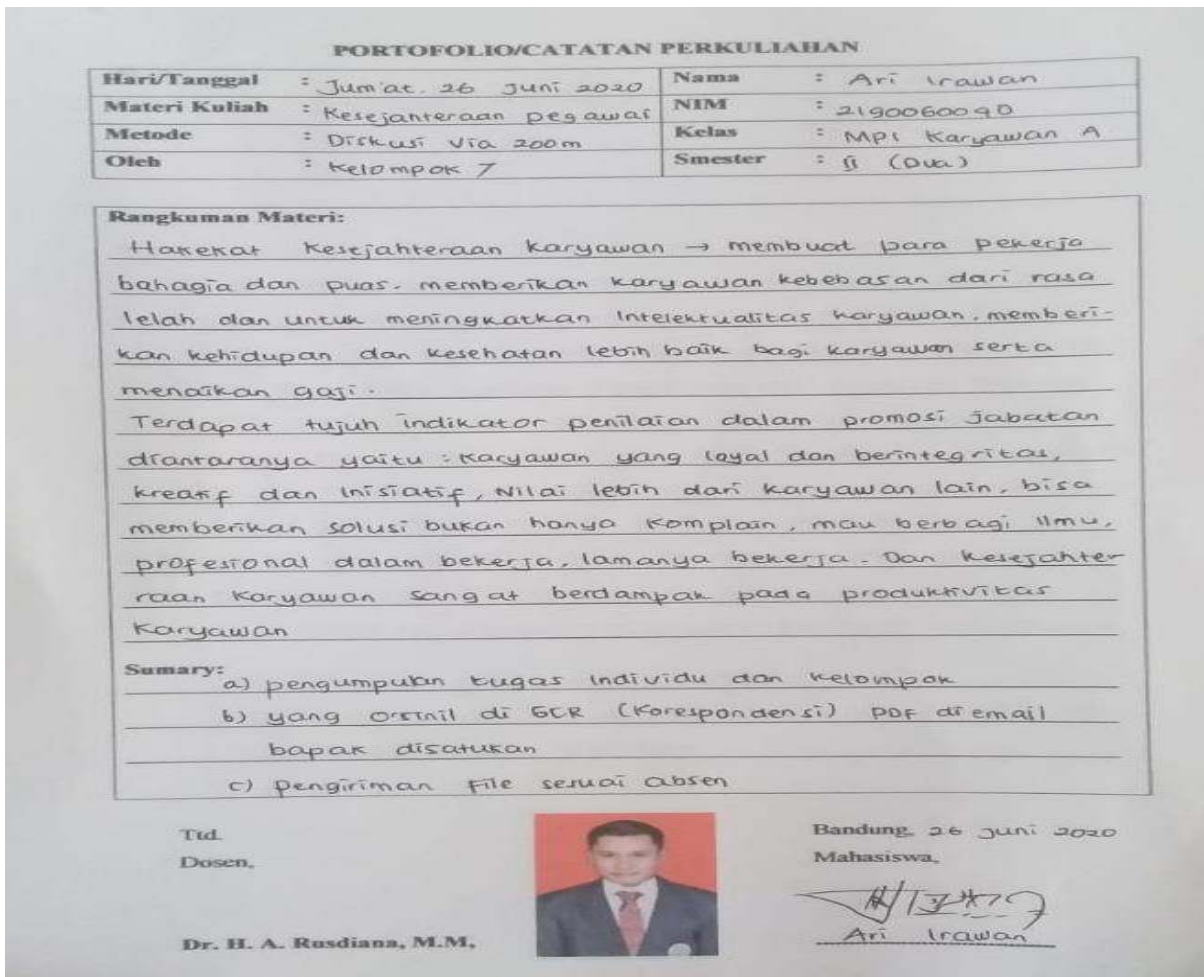 PORTOFOLIO/CATATAN PERKULIAHAN
Hari/Tanggal : Jum'at, 26 Juni 2020 Nama : Ari Irawan
Materi Kuliah : Kesejahteraan pegawai NIM : 2190060090
Metode : Diskusi Via Zoom Kelas : MPI Karyawan A
Oleh : Kelompok 7 Smester : II (Dua)
Rangkuman Materi:
Hakekat Kesejahteraan karyawan → membuat para pekerja
bahagia dan puas. memberikan karyawan kebebasan dari rasa
lelah dan untuk meningkatkan Intelektualitas karyawan. memberi-
kan kehidupan dan kesehatan lebih baik bagi karyawan serta
menaikan gaji.
Terdapat tujuh indikator penilaian dalam promosi jabatan
diantaranya yaitu : Karyawan yang loyal dan berintegritas,
kreatif dan inisiatif, Nilai lebih dari karyawan lain, bisa
memberikan solusi bukan hanya komplain, mau berbagi ilmu,
profesional dalam bekerja, lamanya bekerja. Dan kesejahter
raan Karyawan sangat berdampak pada produktivitas
Karyawan
Sumary:
a) pengumpulan tugas individu dan kelompok
b) yang orsinil di GCR (Korespondensi) PDF di email
bapak disatukan
c) pengiriman File sesuai absen
Ttd. Bandung, 26 Juni 2020
Dosen, Mahasiswa,
Dr. H. A. Rusdiana, M.M, Ari Irawan